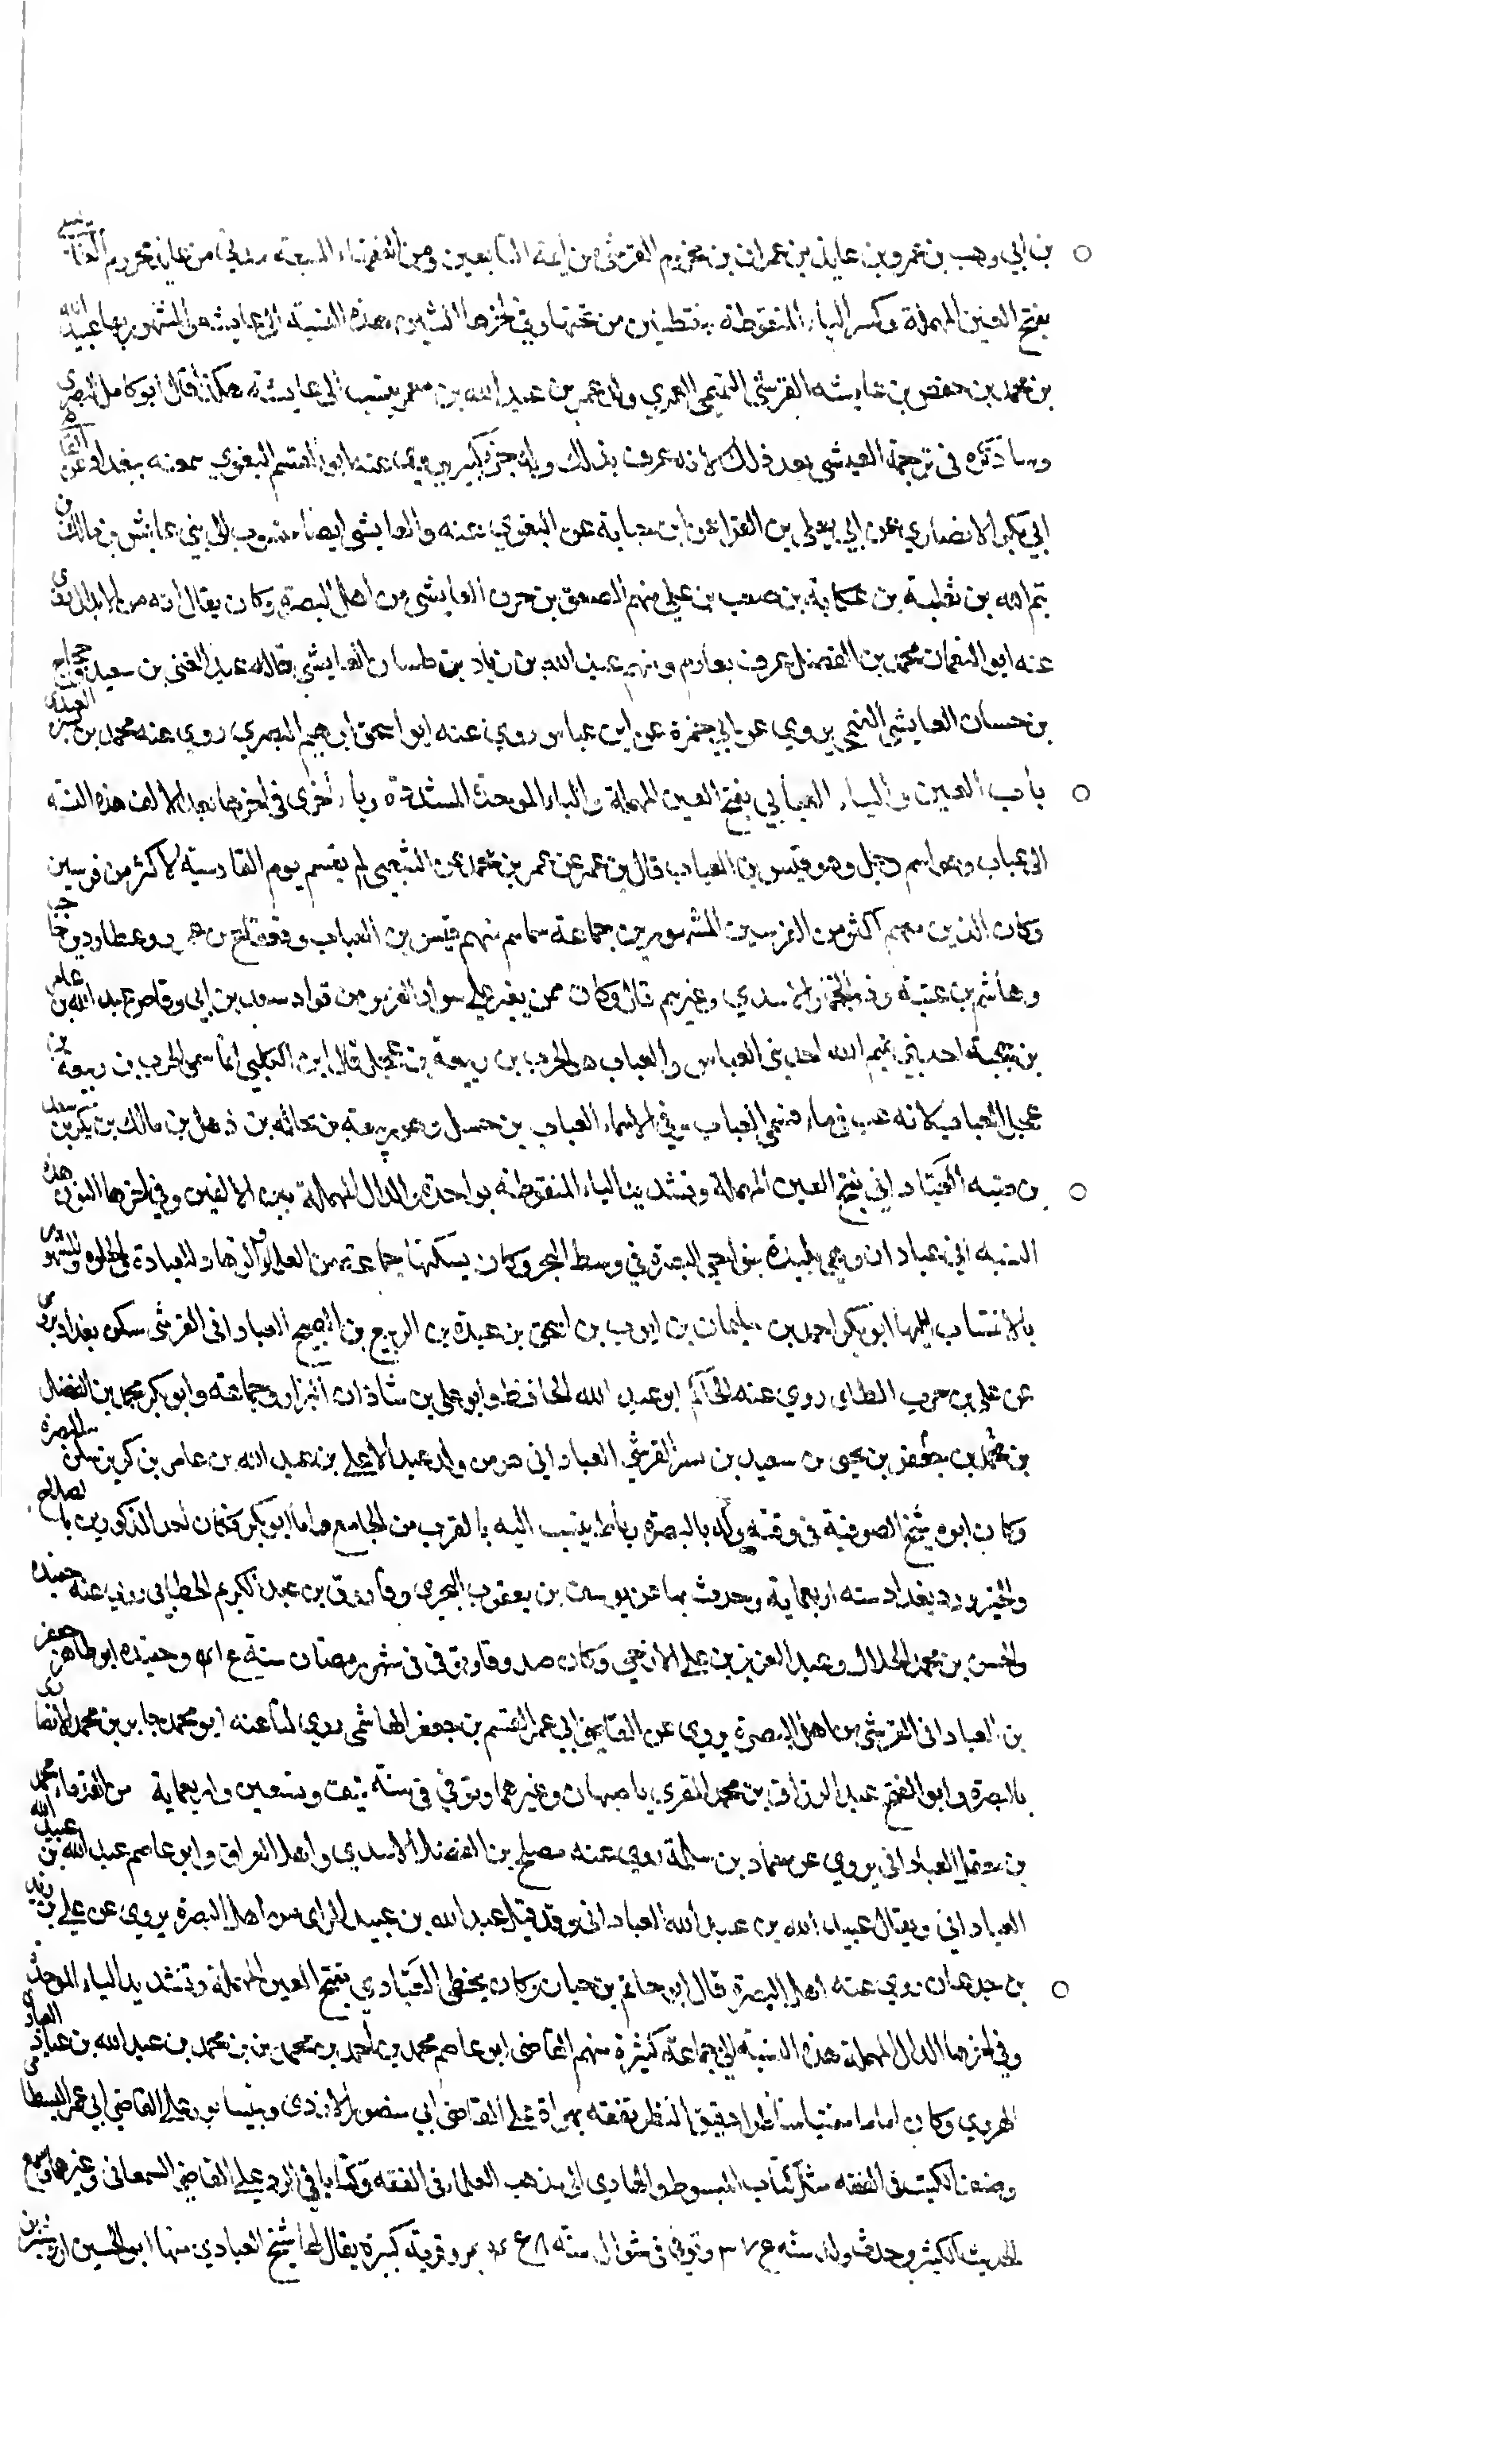 بن ابي وهب بن عمرو بن عايذ بن عمران بن مخزوم القرشي من ايمة التابعين ومن الفقهاء السبعة من عايذ مخزوم العايشي
بفتح العين المهملة وكسر الياء المنقوطة بنقطتين من تحتها وفي اخرها الشين هذه النسبة الى عايشه والمشهور بها عبيد الله
بن محمد بن حفص بن عايشه القرشي التيمي العمري ولد عمر بن عبيد الله بن معمر ينسب الى عايشة هكذا قال ابو كامل البصري
وساذكره في ترجمة العيشي بعد ذلك لانه عرف بذلك وله جزء كبير يرويه عنه ابو القسم البغوي سمعته ببغداد عن القاضي
ابي بكر الانصاري عن ابي يعلى بن الفرا عن ابن حبابة عن البغوي عنه والعايشي ايضا منسوب الى بني عايش بن مالك بن
تيم الله بن ثعلبة بن عكابة بن صعب بن علي منهم الصعق بن حزن العايشي من اهل البصرة وكان يقال انه من الابدال روى
عنه ابو النعمان محمد بن الفضل يعرف بعارم ومنهم عبيد الله بن زياد بن ظبيان العايشي قاله عبد الغني بن سعيد وحجاج
بن حسان العايشي التيمي يروي عن ابي جمرة عن ابن عباس روى عنه ابو اسحق ابراهيم البصري روى عنه محمد بن العبدي
باب العين والباء العبابي بفتح العين المهملة والباء الموحدة المشددة وباء أخرى في اخرها بعد الالف هذه النسبة
الى عباب وهو اسم رجل وهو قيس بن العباب قال بن عمر عن عمر بن محمد عن الشعبي لم يقسم يوم القادسية لاكثر من فرسين
وكان الذين معهم اكثر من الفرسين المشهورين جماعة سماهم منهم قيس بن العباب وعطارد بن حاجب
وهاشم بن عتبة الاسدي وغيرهم قال وكان ممن يغير على سواد من قواد سعد بن ابي وقاص عبد الله بن عامر
بن احد بني تيم الله احد بني العباس والعباب هو الحرب بن ربيعة بن عجل قال ابن الكلبي انما سمى الحرب بن ربيعة بن
عجل العباب لانه عب في ماء فسمي العباب وفي الاسماء العباب بن بن ذهل بن مالك بن بكر بن سعد
بن ضبه العبّاداني بفتح العين المهملة وتشديد الباء المنقوطة بواحدة والدال المهملة بين الالفين وفي اخرها النون هذه
النسبه الى عبادان وهي بليدة بنواحي البصرة في وسط البحر وكان يسكنها جماعة من العلماء والزهاد للعبادة والخلوة والمشهور
بالانتساب اليها ابو بكر احمد بن سليمان بن ايوب بن اسحق بن عبدة بن الربيع بن صبيح العباداني القرشي سكن بغداد يروي
عن علي بن حرب الطاي روى عنه الحاكم ابو عبد الله الحافظ وابو علي بن شاذان البزار وجماعة وابو بكر محمد بن الفضل
بن محمد بن جعفر بن يحيى بن سعيد بن القرشي العباداني هو من ولد عبد الاعلى بن عبد الله بن عامر بن كريز سكن البصرة
وكان ابوه شيخ الصوفية في وقته وله بالبصرة رباط ينسب اليه بالقرب من الجامع واما ابو بكر فكان احد المذكورين بالصلاح
والخير ورد بغداد سنه اربعماية وحدث بها عن يوسف بن يعقوب النجيرمي وفاروق بن عبد الكريم الخطابي روى عنه حفيده
والحسن بن محمد الخلال وعبد العزيز بن علي الازجي وكان صدوقا وتوفي في شهر رمضان سنة وحفيده ابو طاهر جعفر
بن العباداني القرشي من اهل البصرة يروي عن القاضي ابي عمر القسم بن جعفر الهاشمي روى لنا عنه ابو محمد جابر بن محمد الانصاري
بالبصرة وابو الفتح عبد الرزاق بن محمد المقري باصبهان وغيرهما وتوفي في سنة نيف وتسعين واربعماية من القدماء محمد
بن معقل العباداني يروي عن حماد بن سلمة روى عنه مصلح بن الفضل الاسدي واهل العراق وابو عاصم عبد الله بن عبيد الله
العباداني ويقال عبيد الله بن عبد الله العباداني وقد قيل عبد الله بن عبيد المراي من اهل البصرة يروي عن علي بن زيد
بن جدعان روى عنه اهل البصرة قال ابو حاتم بن حبان وكان يخطي العَبّادي بفتح العين المهملة وتشديد الباء الموحدة
وفي اخرها الدال المهملة هذه النسبة الى جماعة كثيرة منهم القاضي ابو عاصم محمد بن احمد بن محمد بن محمد بن عبد الله بن عباد العبادي
الهروي وكان اماما مفتيا مناظرا دقيق النظر تفقه بهراة على القاضي ابي منصور الازدي وبنيسابور على القاضي ابي عمر البسطامي
وصنف الكتب في الفقه مثل كتاب المبسوط والهادي الى مذهب العلماء في الفقه وكتابا في الرد على القاضي السمعاني وغيرها وسمع
الحديث الكثير وحدث ولد سنه وتوفي في شوال سنه بمرو قرية كبيرة يقال لها شنج العبادي منها ابو الحسين اردشير بن